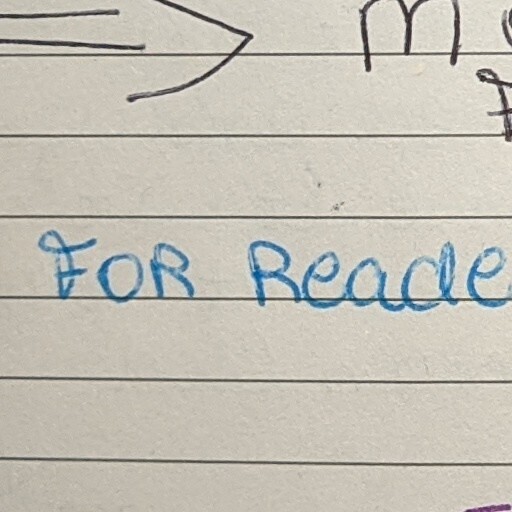 FOR Reade